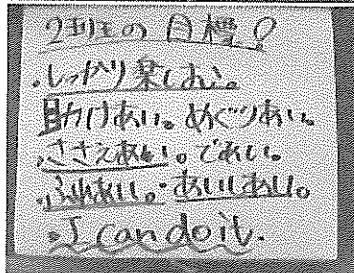 2班の目標!
・しっかり楽しむ。
助けあい。めぐりあい。
・ささえあい。であい。
・ふれあい。・あいしあい。
・I can do it.